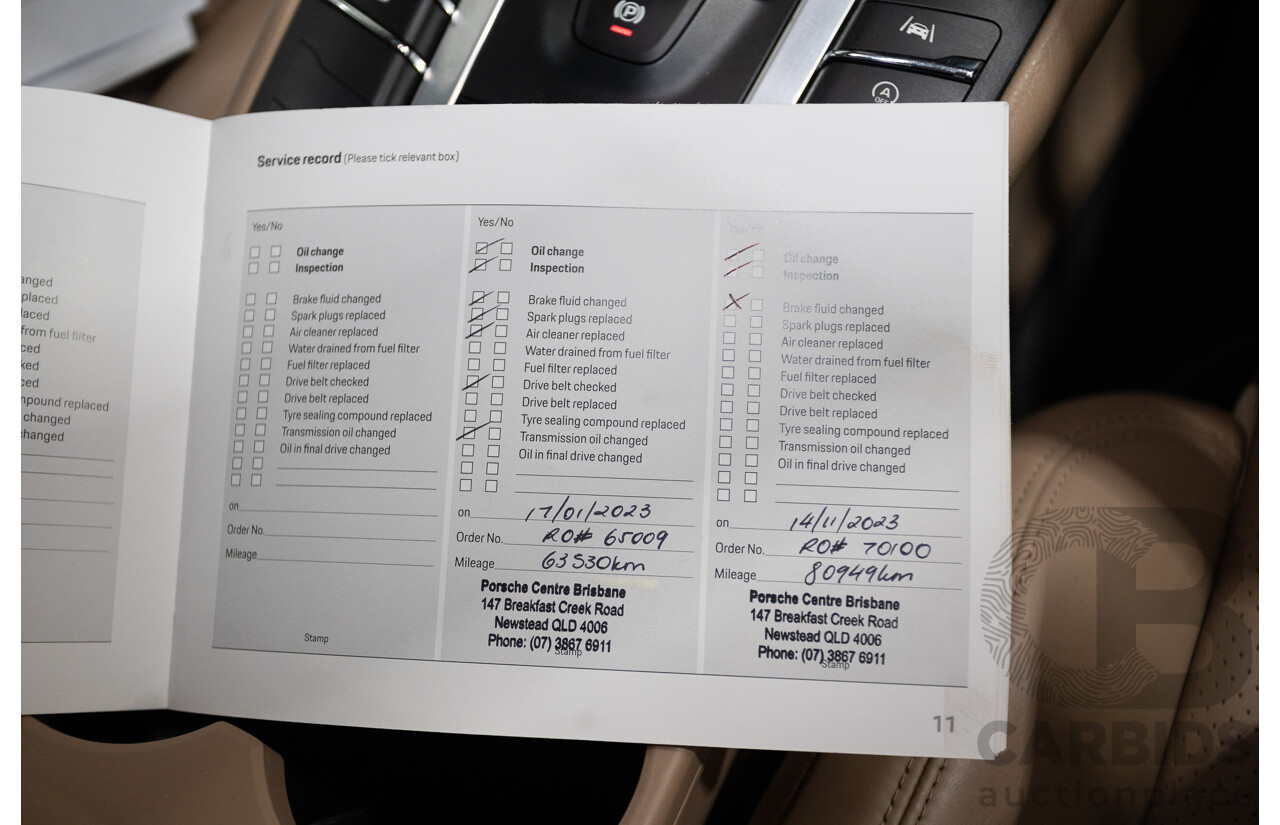 anged
placed
laced
from fuel filter
ced
ked
ced
npound replaced
changed
changed
Service record (Please tick relevant box)
Yes/No
Oil change
Inspection
Brake fluid changed
Spark plugs replaced
Air cleaner replaced
Water drained from fuel filter
Fuel filter replaced
Drive belt checked
Drive belt replaced
Tyre sealing compound replaced
Transmission oil changed
Oil in final drive changed
on
Order No.
Mileage
Stamp
Yes/No
Oil change
Inspection
Brake fluid changed
Spark plugs replaced
Air cleaner replaced
Water drained from fuel filter
Fuel filter replaced
Drive belt checked
Drive belt replaced
Tyre sealing compound replaced
Transmission oil changed
Oil in final drive changed
on 17/01/2023
Order No. RO# 65009
Mileage 63530km
Porsche Centre Brisbane
147 Breakfast Creek Road
Newstead QLD 4006
Phone: (07) 3867 6911
Stamp
Yes/No
Oil change
Inspection
Brake fluid changed
Spark plugs replaced
Air cleaner replaced
Water drained from fuel filter
Fuel filter replaced
Drive belt checked
Drive belt replaced
Tyre sealing compound replaced
Transmission oil changed
Oil in final drive changed
on 14/11/2023
Order No. RO# 70100
Mileage 80949km
Porsche Centre Brisbane
147 Breakfast Creek Road
Newstead QLD 4006
Phone: (07) 3867 6911
Stamp
11
P
A
OFF
CARBIDS
auctionpiece